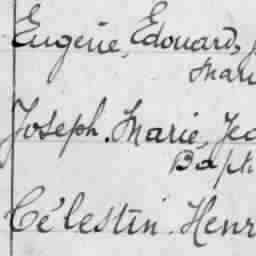 Eugène, Édouard,
Joseph. Marie, Jea
Bapt
Célestin. Henr